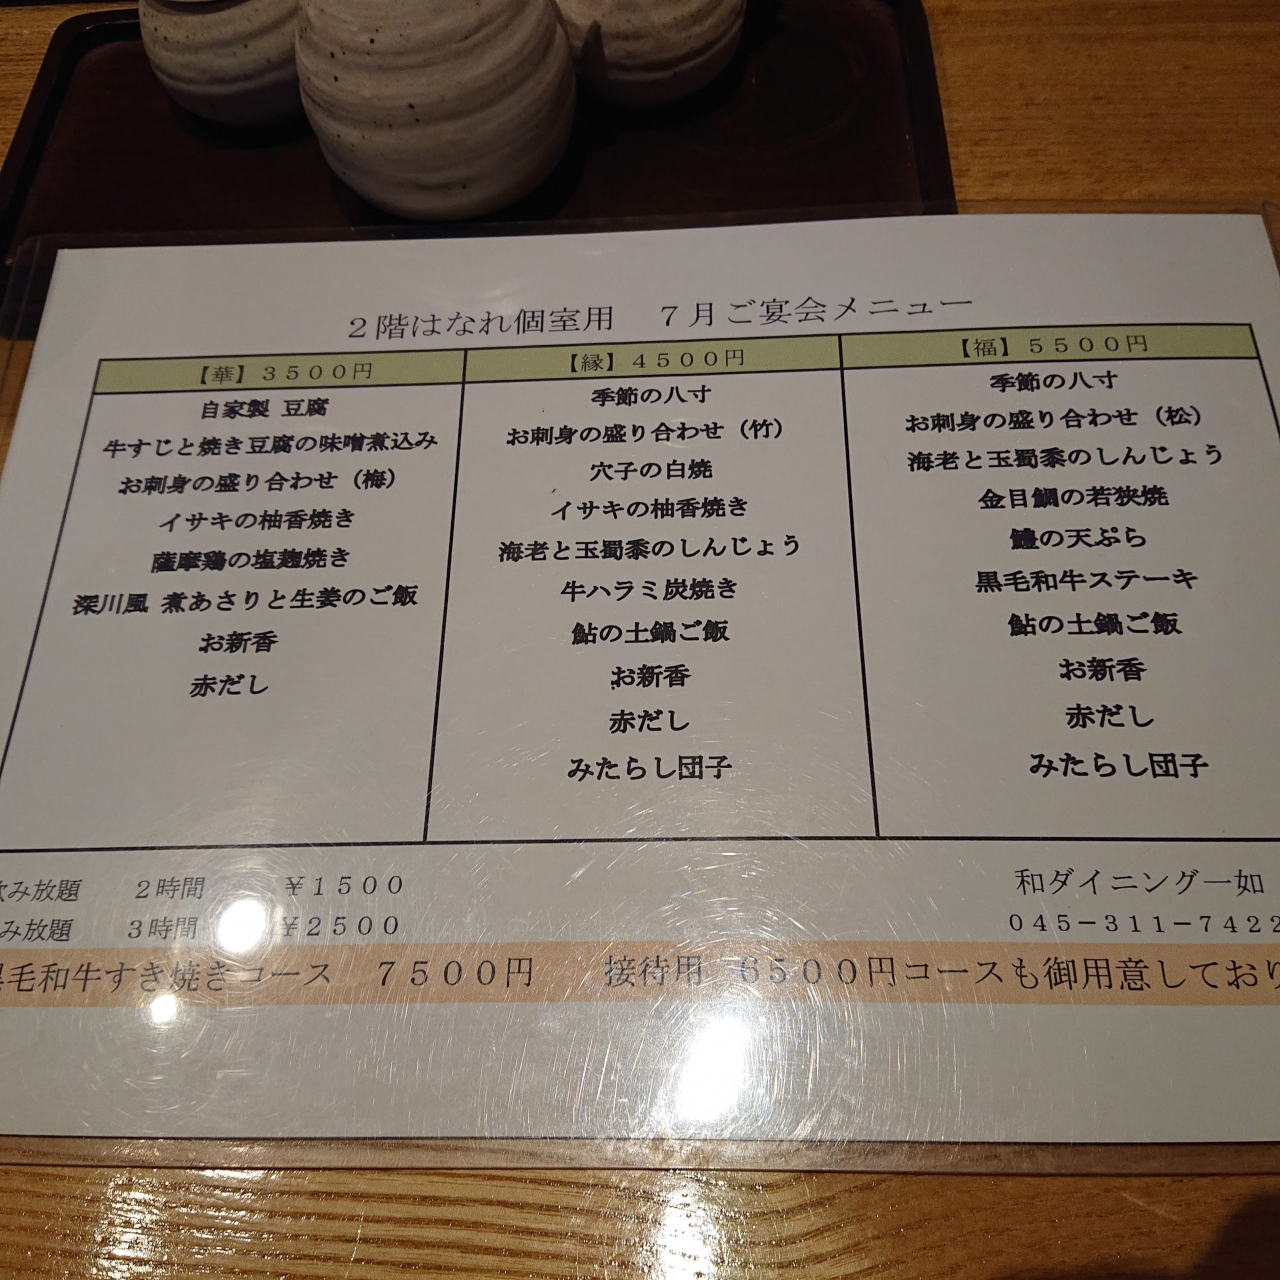 ２階はなれ個室用　７月ご宴会メニュー
【華】３５００円
自家製 豆腐
牛すじと焼き豆腐の味噌煮込み
お刺身の盛り合わせ（梅）
イサキの柚香焼き
薩摩鶏の塩麹焼き
深川風 煮あさりと生姜のご飯
お新香
赤だし
【縁】４５００円
季節の八寸
お刺身の盛り合わせ（竹）
穴子の白焼
イサキの柚香焼き
海老と玉蜀黍のしんじょう
牛ハラミ炭焼き
鮎の土鍋ご飯
お新香
赤だし
みたらし団子
【福】５５００円
季節の八寸
お刺身の盛り合わせ（松）
海老と玉蜀黍のしんじょう
金目鯛の若狭焼
鱧の天ぷら
黒毛和牛ステーキ
鮎の土鍋ご飯
お新香
赤だし
みたらし団子
飲み放題　２時間　￥１５００
み放題　３時間　￥２５００
和ダイニング一如
０４５－３１１－７４２２
黒毛和牛すき焼きコース　７５００円　接待用　６５００円コースも御用意しており